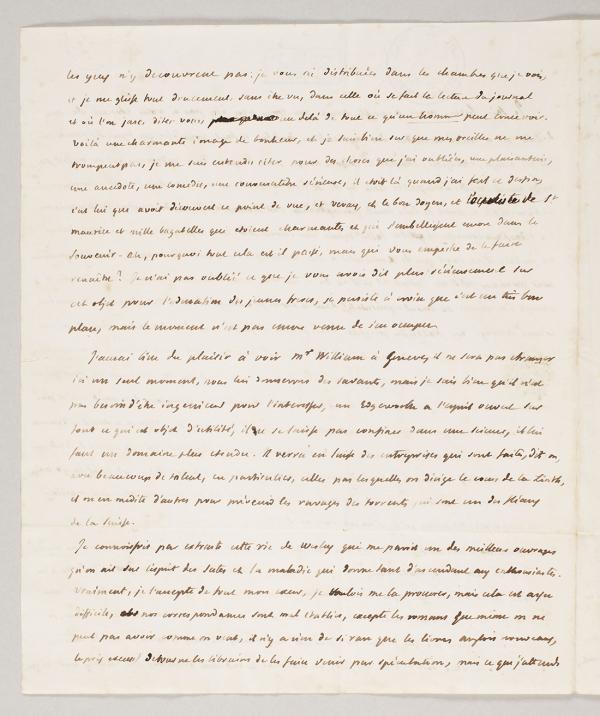 les yeux n'y decouvrent pas. je vous ai distribuées dans les chambres que je vois,
et je me glisse tout doucement, sans être vu, dans celle où se fait la lecture du journal
et où l'on jase, diter vous, au delà de tout ce qu'un homme peut concevoir.
voilà une charmante image de bonheur, et je suis bien sur que mes oreilles ne me
trompent pas, je me suis entendu citer pour des choses que j'ai oubliées, une plaisanterie,
une anecdote, une comedie, une conversation sérieuse, il étoit là quand j'ai fait ce dessein,
c'est lui que avoit découvert ce point de vue, et Vevay, et le bon doyen, et de St
maurice et mille bagatelles que étoient charmantes et qui s'embellissent encore dans le
souvenir. Ah, pourquoi tout cela est il passé, mais qui vous empeche de le faire
renaître? Je n'ai pas oublié ce que je vous avois dit plus sérieusement sur
cet objet pour l'education des jeunes freres, je persiste à croire que c'est un très bon
plan, mais le moment n'est pas encore venu de s'en occuper.
J'aurai bien du plaisir à voir Mr William à Geneve, il ne sera pas étranger
ici un seul moment, nous lui donnerons des savants, mais je sais bien qu'il n'est
pas besoin d'être ingenieur pour l'interesser, un Edgeworth a l'esprit ouvert sur
tout ce qui est objet d'utilité, il ne se laisse pas confiner dans une science, il lui
faut un domaine plus etendu. Il verra en Suisse des entreprises qui sont faites, dit on,
avec beaucoup de talent, en particulier, celles par lesquelles on dirige le cours de la Linth,
et on en médite d'autres pour prévenir les ravages des torrents qui sont un des fléaux
de la Suisse.
Je connoissois par extraits cette vie de Wesley que me paroit un des meilleurs ouvrages
qu'on ait sur l'esprit des sectes et la maladie qui donne tant d'ascendant aux enthousiastes.
vraiment, je l'accepte de tout mon cœur, je voulois me la procurer, mais cela est assez
difficile, nos correspondances sont mal etablies, excepté les romans que même on ne
peut pas avoir comme on veut, il n'y a rien de si rare que les livres anglois nouveaux,
le prix excessif detourne les libraires de les faire venir par spéculation, mais ce que j'attends